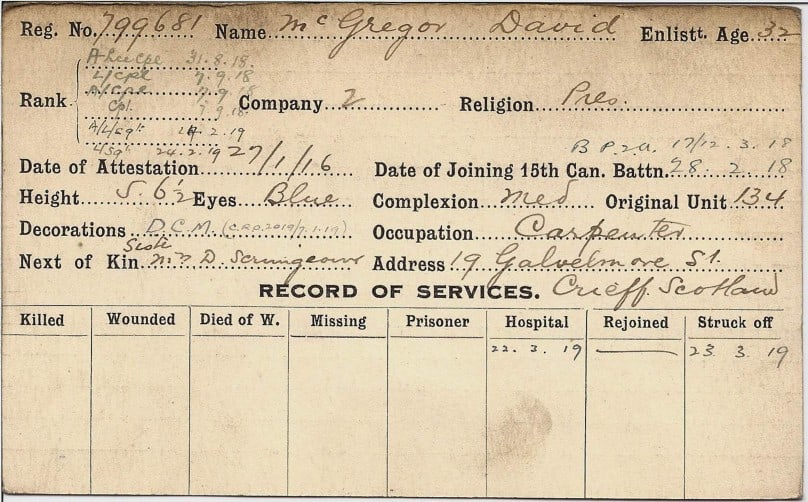 Reg. No. 799681 Name McGregor David Enlistt. Age. 32
31.8.18.
L/Cpl 7.9.18
A/Cpl 7.9.18
Rank Cpl. 7.9.18. Company 2 Religion Pres.
A/L/Sgt 2.19
L/Sgt 24.2.19 17/12.3.18
Date of Attestation 27/1/16 Date of Joining 15th Can. Battn. 28.2.18
Height 5.6½ Eyes Blue Complexion Med Original Unit 134
Decorations D.C.M. Occupation Carpenter
Next of Kin Mrs D. Scrimgeour Address 19 Galvelmore St.
RECORD OF SERVICES. Crieff. Scotland
Killed Wounded Died of W. Missing Prisoner Hospital Rejoined Struck off
22.3.19 23 3 19